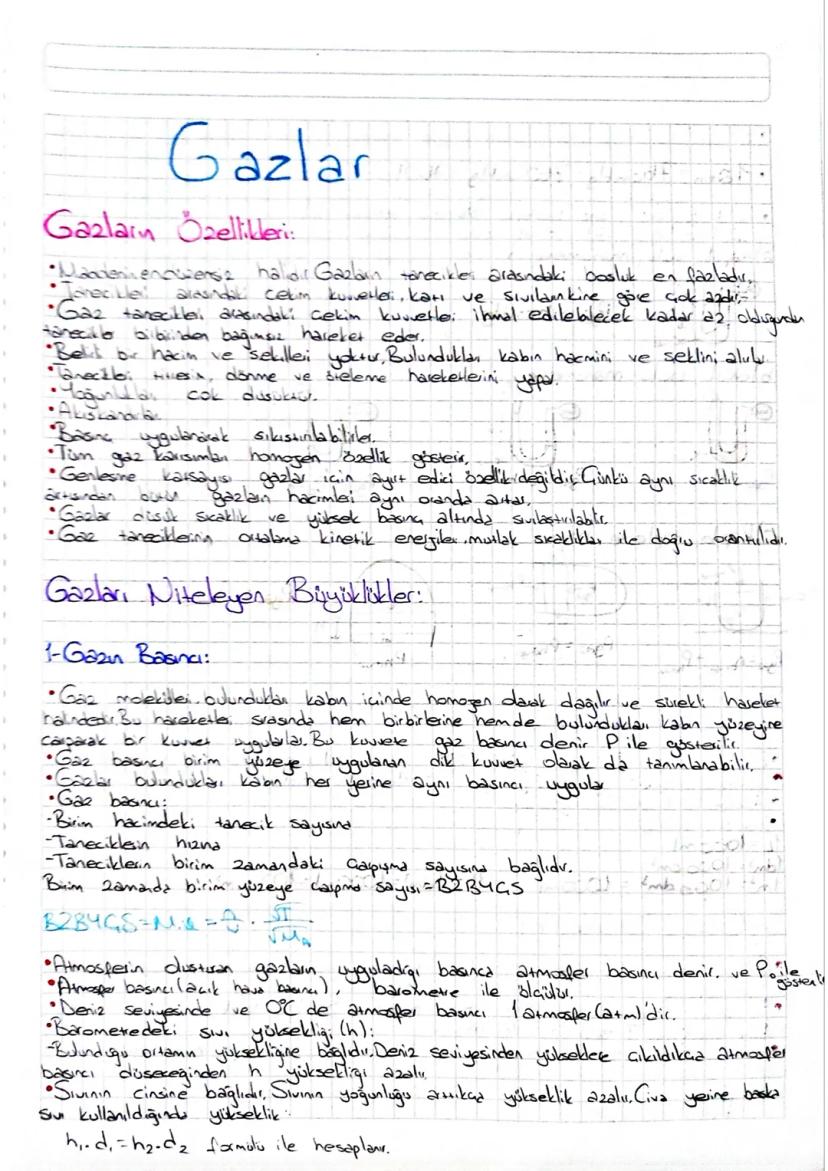 Gazlar
Gazların Özellikleri:
•Maddenin en düzensiz halidir Gazların tanecikleri arasındaki boşluk en fazladır.
•Tanecikleri arasındaki çekim kuvvetleri, katı ve sıvılarınkine göre çok azdır.
•Gaz tanecikleri arasındaki çekim kuvvetleri ihmal edilebilecek kadar az olduğundan
tanecikler birbirinden bağımsız hareket eder.
•Belirli bir hacim ve şekilleri yoktur, Bulundukları kabın hacmini ve şeklini alırlar
•Tanecikleri titreşim, dönme ve öteleme hareketlerini yapar.
•Yoğunlukları çok düşüktür.
•Akışkandırlar.
•Basınç uygulanarak sıkıştırılabilirler.
•Tüm gaz karışımları homojen özellik gösterir.
•Genleşme katsayısı gazlar için ayırt edici özellik değildir, Çünkü aynı sıcaklık
artışından bütün gazların hacimleri aynı oranda artar.
•Gazlar düşük sıcaklık ve yüksek basınç altında sıvılaştırılabilir.
•Gaz taneciklerinin ortalama kinetik enerjileri, mutlak sıcaklıkları ile doğru orantılıdır.
Gazları Niteleyen Büyüklükler:
1-Gazın Basıncı:
•Gaz molekülleri bulundukları kabın içinde homojen olarak dağılır ve sürekli hareket
halindedir. Bu hareketler sırasında hem birbirlerine hemde bulundukları kabın yüzeyine
çarparak bir kuvvet uygularlar. Bu kuvvete gaz basıncı denir P ile gösterilir.
•Gaz basıncı birim yüzeye uygulanan dik kuvvet olarak da tanımlanabilir.
•Gazlar bulundukları kabın her yerine aynı basıncı uygular
•Gaz basıncı:
-Birim hacimdeki tanecik sayısına
-Taneciklerin hızına
-Taneciklerin birim zamandaki çarpışma sayısına bağlıdır.
Birim zamanda birim yüzeye çarpma sayısı=BZBYÇS
BZBYÇS=M.ϑ = n/V . √T/√MA
•Atmosferin oluşturan gazların uyguladığı basınca atmosfer basıncı denir. ve P₀ ile gösterilir
•Atmosfer basıncı (açık hava basıncı), barometre ile ölçülür.
•Deniz seviyesinde ve 0°C de atmosfer basıncı 1 atmosfer (atm)'dir.
•Barometredeki sıvı yüksekliği (h):
-Bulunduğu ortamın yüksekliğine bağlıdır. Deniz seviyesinden yükseklere çıkıldıkça atmosfer
basıncı düşeceğinden h yüksekliği azalır.
•Sıvının cinsine bağlıdır, Sıvının yoğunluğu arttıkça yükseklik azalır. Civa yerine başka
sıvı kullanıldığında yükseklik:
h₁.d₁=h₂.d₂ formülü ile hesaplanır.